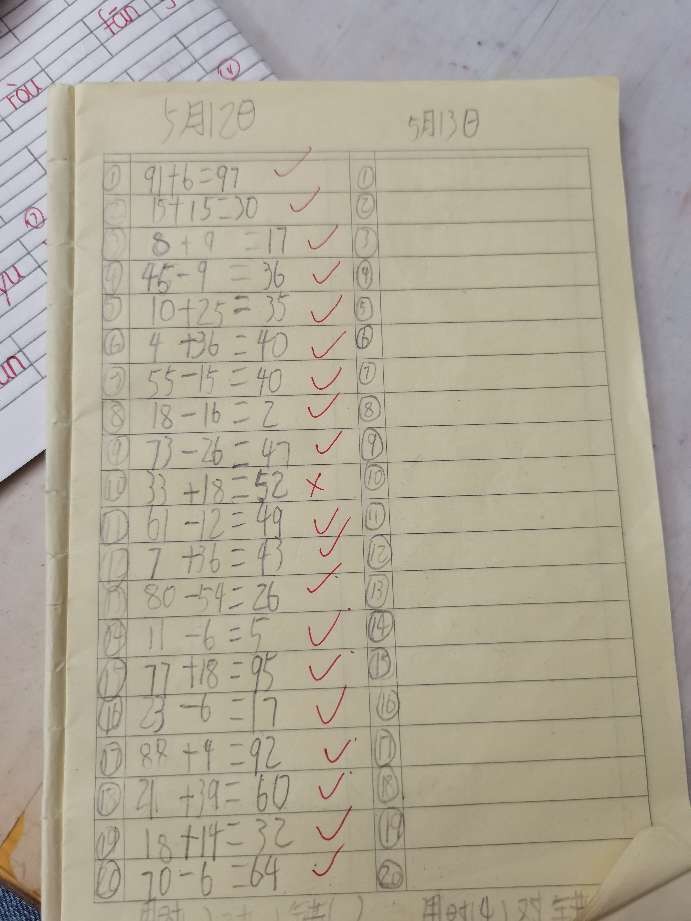 ròu
fān
yu
5月12日 5月13日
① 91+6=97 ✓ ①
② 15+15=30 ✓ ②
③ 8+9=17 ✓ ③
④ 45-9=36 ✓ ④
⑤ 10+25=35 ✓ ⑤
⑥ 4+36=40 ✓ ⑥
⑦ 55-15=40 ✓ ⑦
⑧ 18-16=2 ✓ ⑧
⑨ 73-26=47 ✓ ⑨
⑩ 33+18=52 × ⑩
⑪ 61-12=49 ✓ ⑪
⑫ 7+36=43 ✓ ⑫
⑬ 80-54=26 ✓ ⑬
⑭ 11-6=5 ✓ ⑭
⑮ 77+18=95 ✓ ⑮
⑯ 23-6=17 ✓ ⑯
⑰ 88+4=92 ✓ ⑰
⑱ 21+39=60 ✓ ⑱
⑲ 18+14=32 ✓ ⑲
⑳ 70-6=64 ✓ ⑳